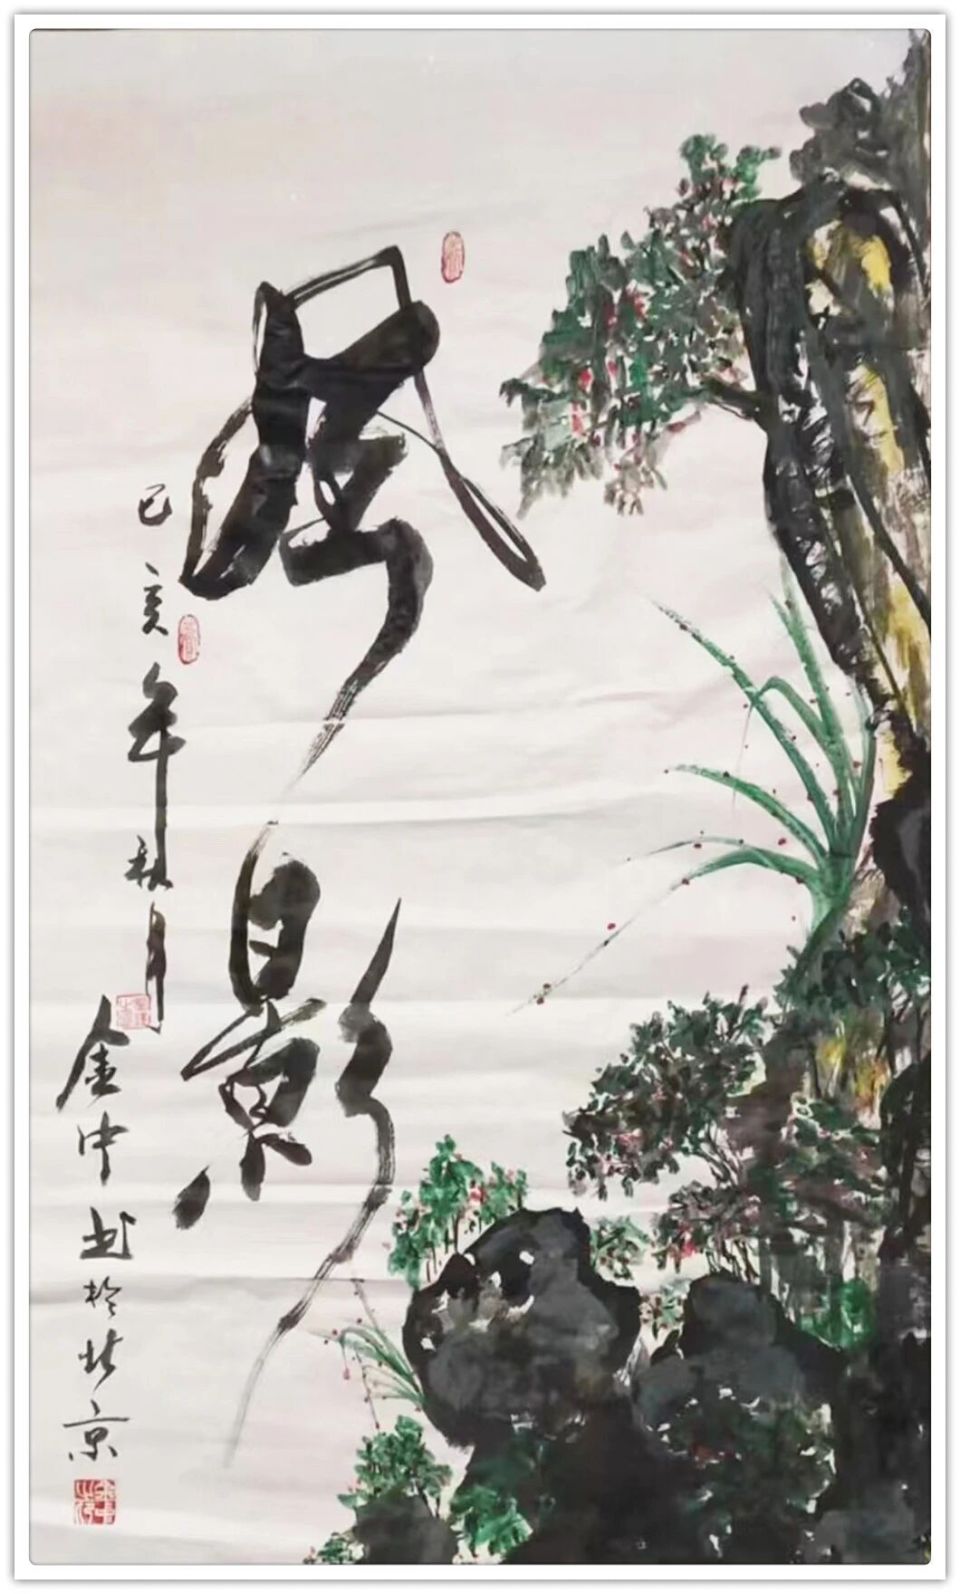 风影
己亥年秋月
金中书于北京